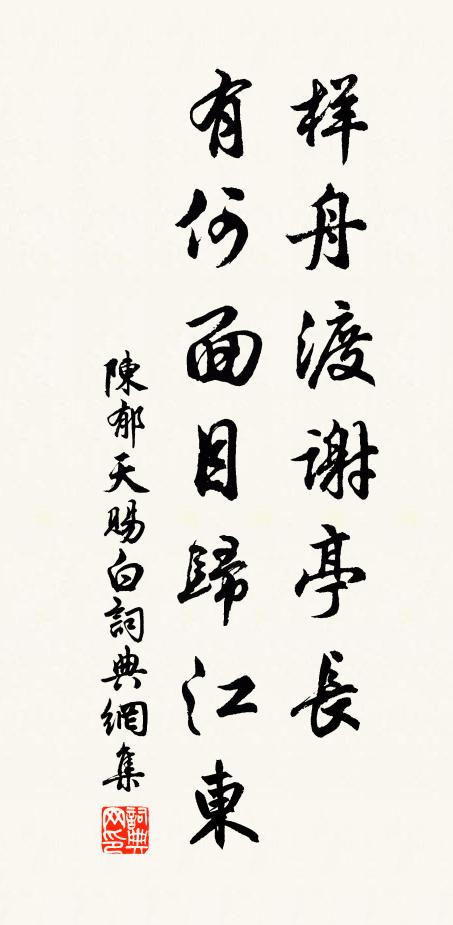 样舟渡谢亭長
有何面目歸江東
陳郁天賜白詞典網集
詞典网印